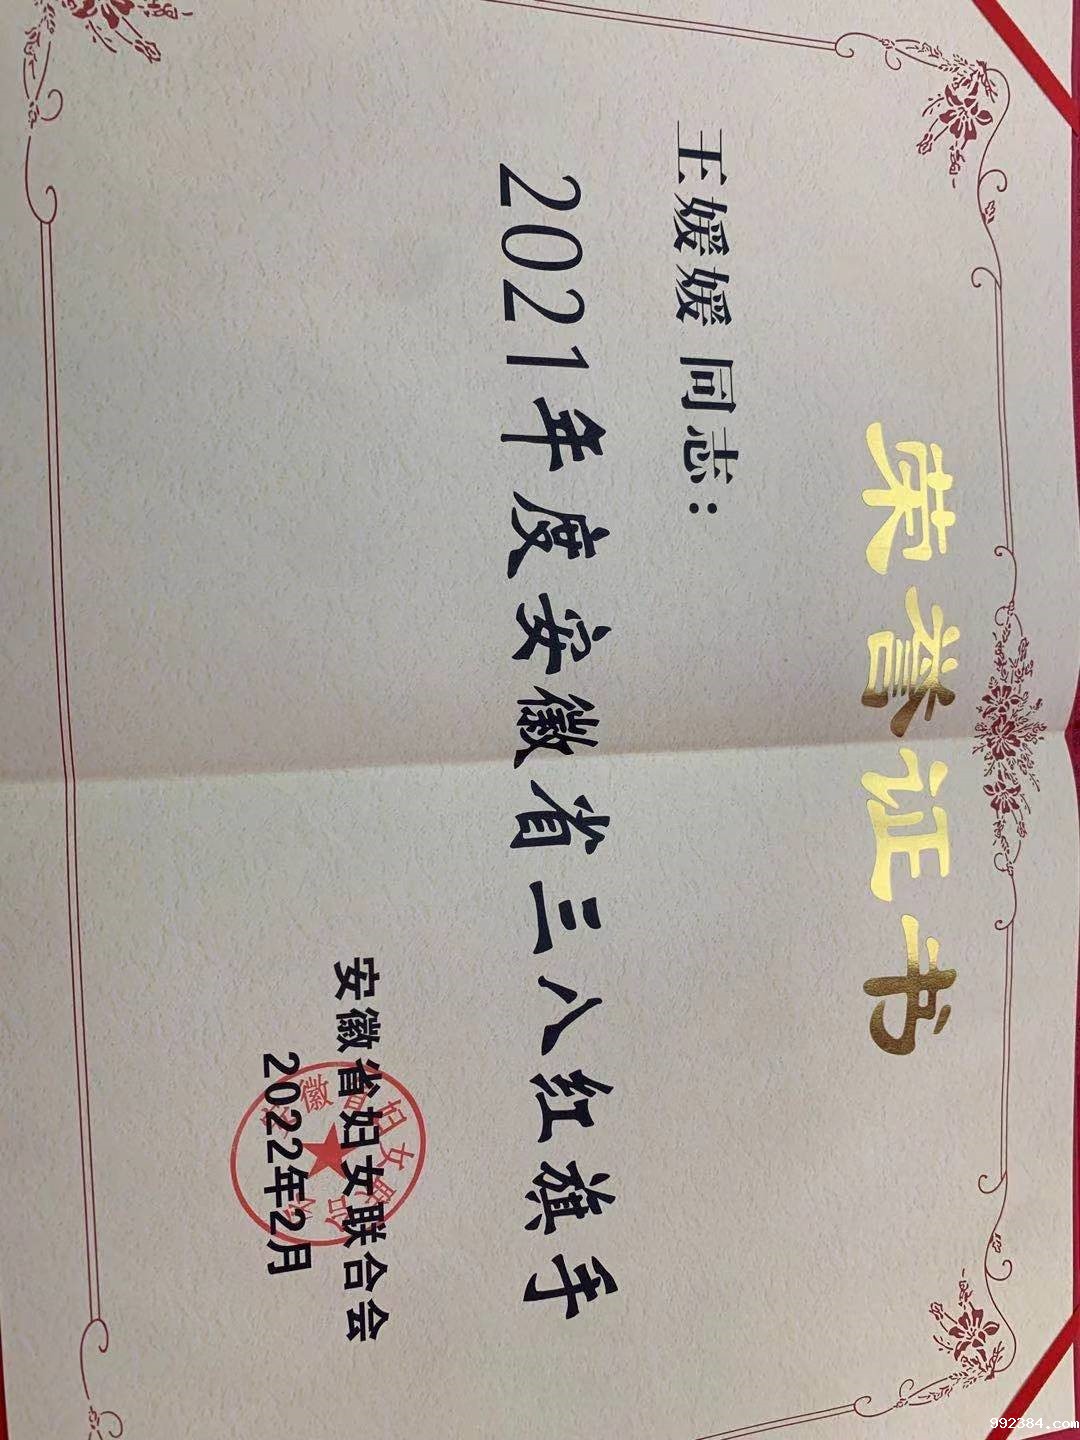 荣誉证书
王媛媛 同志：
2021年度安徽省三八红旗手
安徽省妇女联合会
2022年2月
安徽省妇女联合会
992384.com